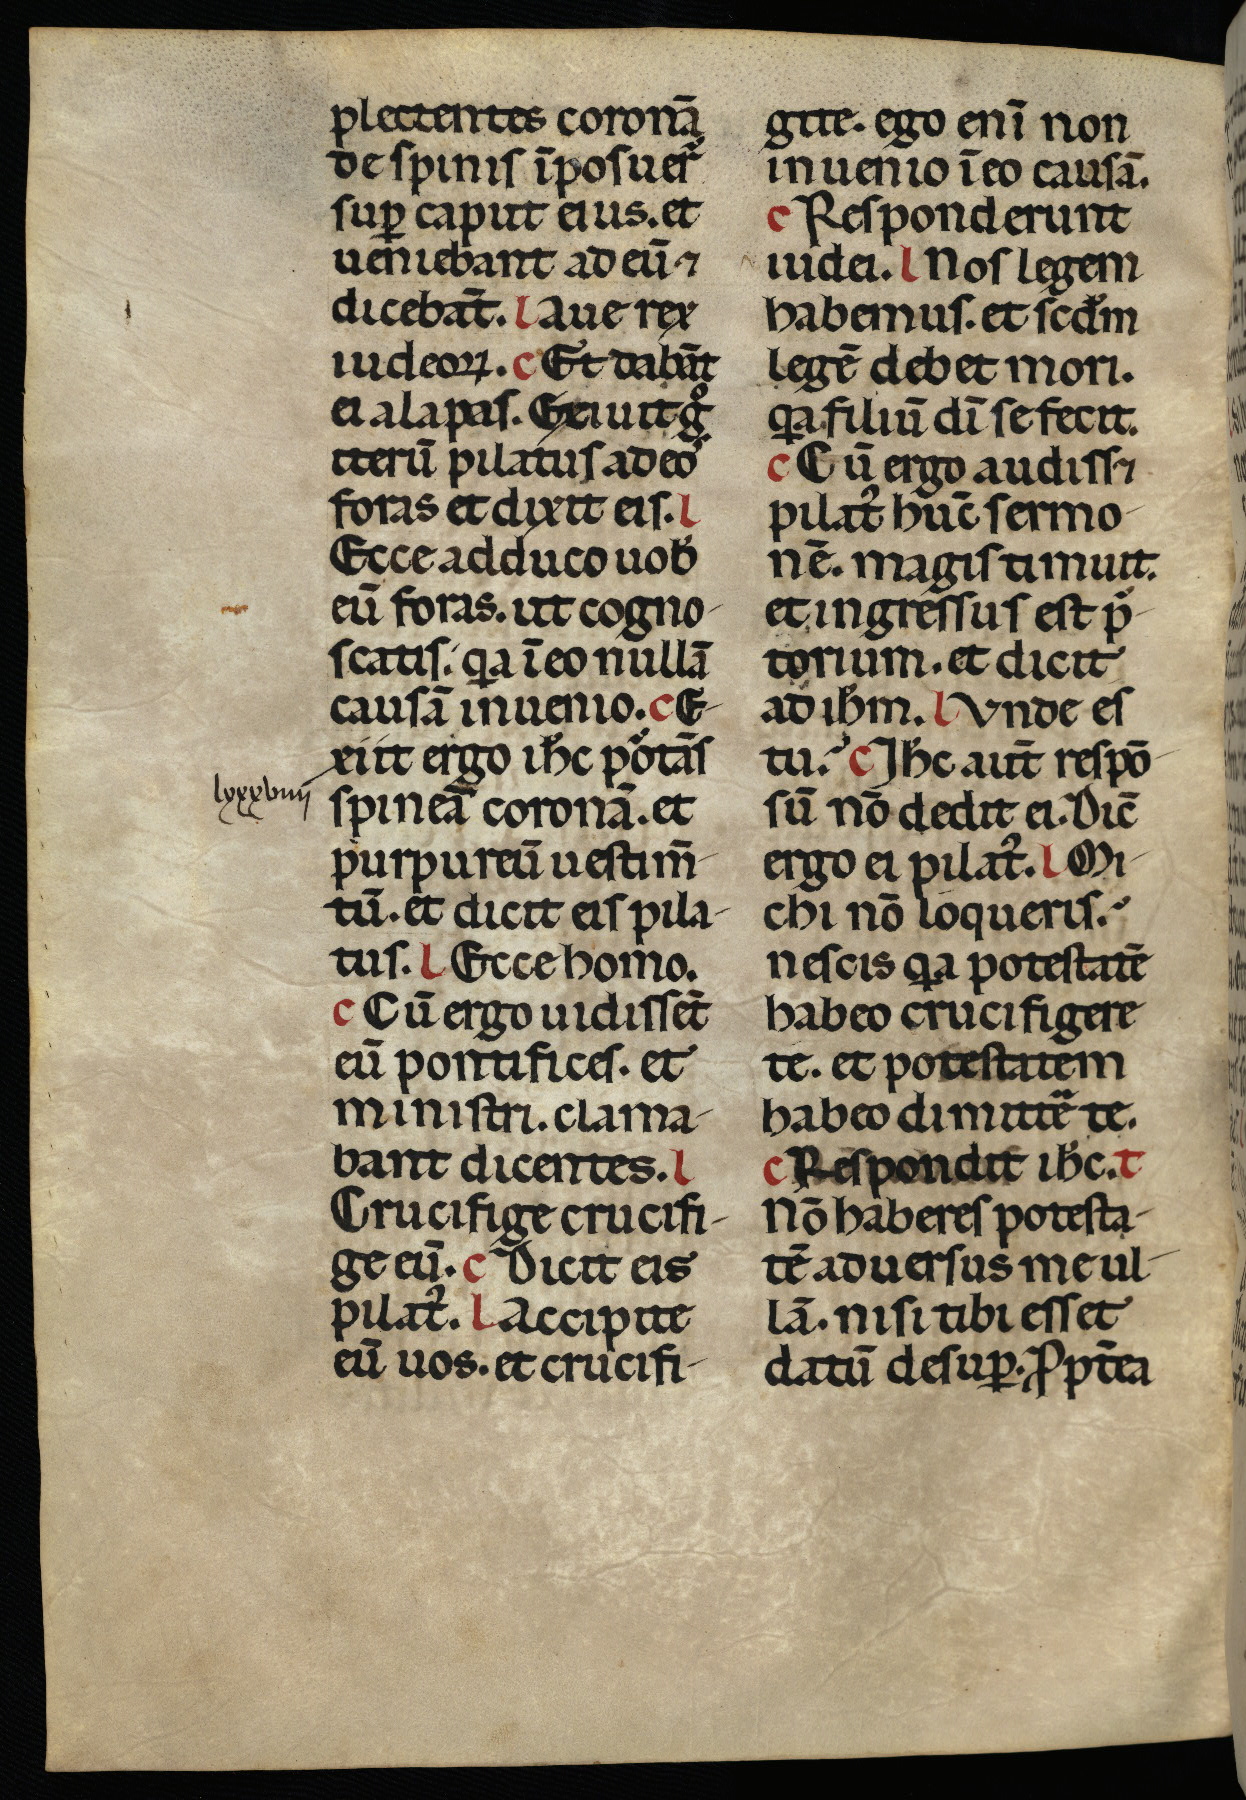 plectentes coronā
de spinis īposuer̄
suꝑ caput eius. et
ueniebant ad eū ⁊
dicebāt. l Aue rex
iudeoꝝ. c Et dabāt
ei alapas. Exiuit gͦ
iterū pilatus ad eoˢ
foras et dixit eis. l
Ecce adduco uob̄
eū foras. ut cogno-
scatis. qͣa ī eo nullā
causā inuenio. c E-
xiit ergo ih̄c poͬtās
lxxxviiij
spineā coronā. et
purpureū uestim̄-
tū. et dicit eis pila-
tus. l Ecce homo.
c Cū ergo uidissēt
eū pontifices. et
ministri. clama-
bant dicentes. l
Crucifige crucifi-
ge eū. c Dicit eis
pilatꝰ. l Accipite
eū uos. et crucifi-
gite. ego eni̅ non
inuenio ī eo causā.
c Responderunt
iudei. l Nos legem
habemus. et scd̄m
legē debet mori.
qͣa filiū dī se fecit.
c Cū ergo audiss⁊
pilatꝰ hūc sermo-
nē. magis timuit.
et ingressus est p̄-
torium. et dicit
ad ih̄m. l Vnde es
tu? c Jh̄c aut̄ respō-
sū nō dedit ei. Dic̄
ergo ei pilatꝰ. l Mi-
chi nō loqueris?
nescis qͣa potestatē
habeo crucifigere
te. et potestatem
habeo dimittēͣ te.
c Respondit ih̄c. t
Nō haberes potesta-
tē aduersus me ul-
lā. nisi tibi esset
datū desuꝑ. Ꝓpt̄ea